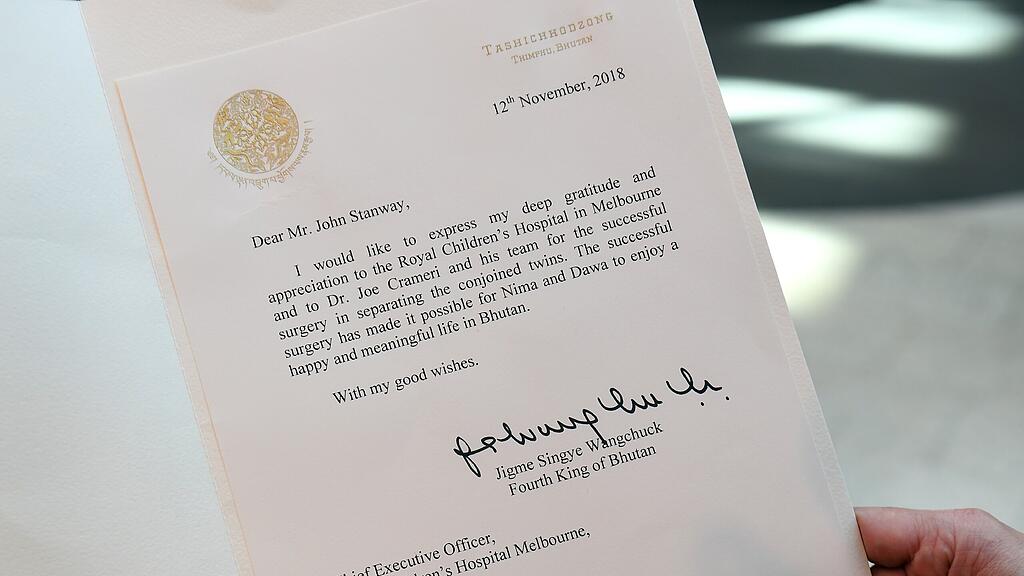 TASHICHHODZONG
THIMPHU, BHUTAN
12th November, 2018
Dear Mr. John Stanway,
I would like to express my deep gratitude and
appreciation to the Royal Children's Hospital in Melbourne
and to Dr. Joe Crameri and his team for the successful
surgery in separating the conjoined twins. The successful
surgery has made it possible for Nima and Dawa to enjoy a
happy and meaningful life in Bhutan.
With my good wishes.
Jigme Singye Wangchuck
Fourth King of Bhutan
Executive Officer,
Hospital Melbourne,